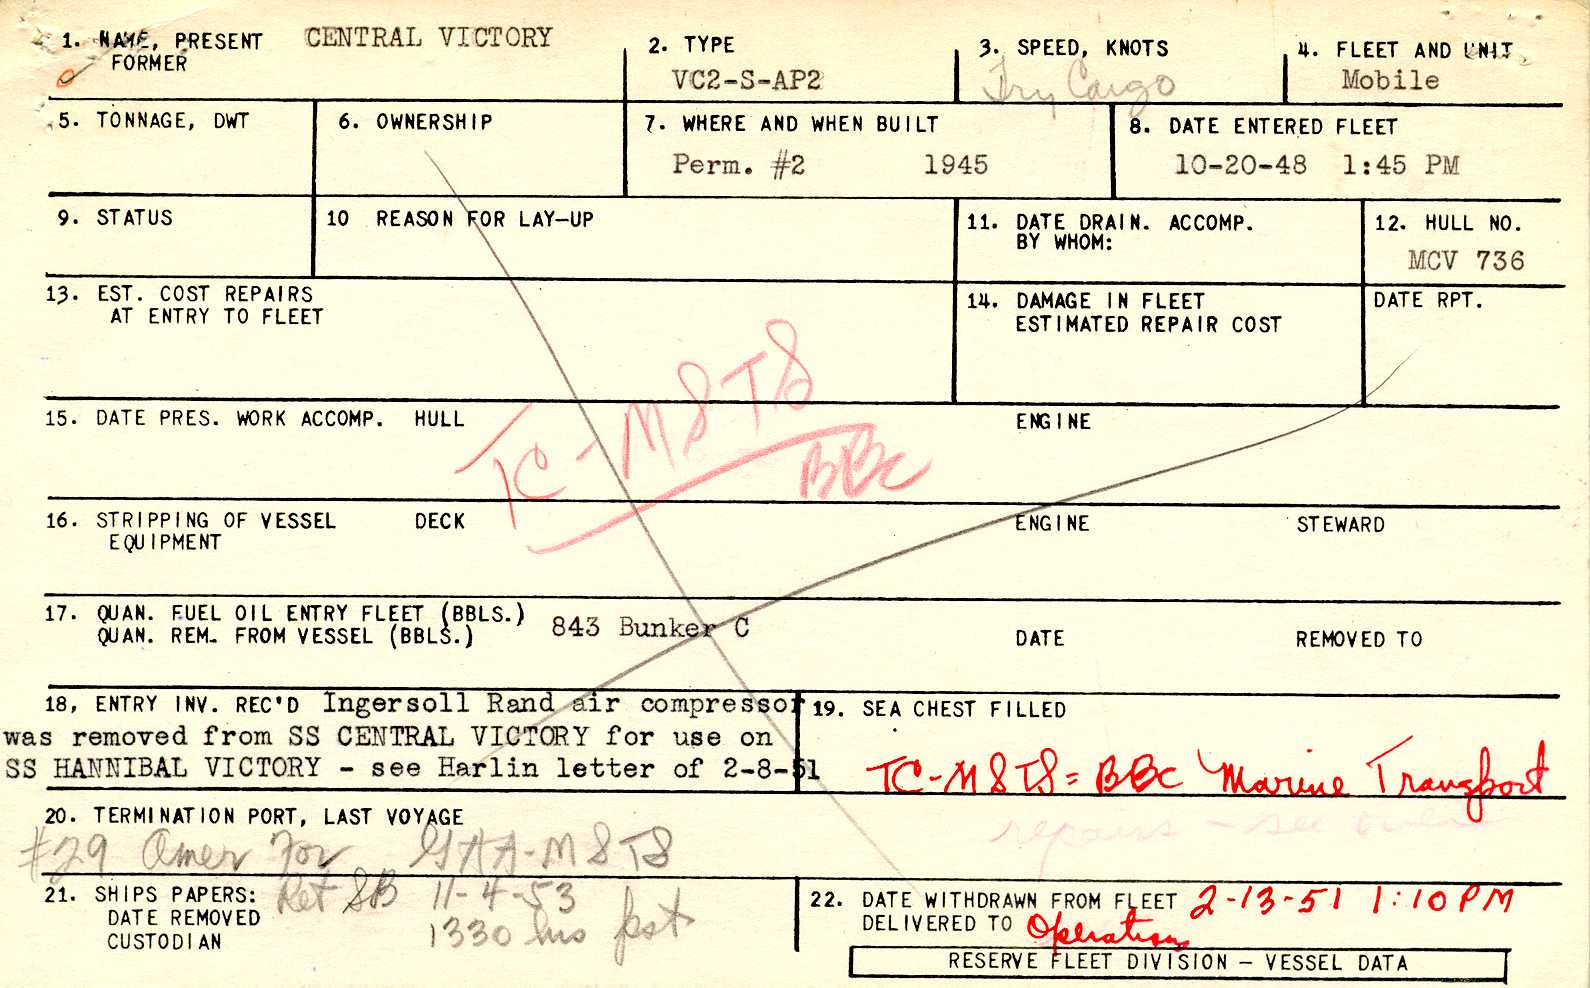 1. NAME, PRESENT CENTRAL VICTORY
FORMER
2. TYPE
VC2-S-AP2
3. SPEED, KNOTS
Dry Cargo
4. FLEET AND UNIT
Mobile
5. TONNAGE, DWT
6. OWNERSHIP
7. WHERE AND WHEN BUILT
Perm. #2 1945
8. DATE ENTERED FLEET
10-20-48 1:45 PM
9. STATUS
10 REASON FOR LAY-UP
11. DATE DRAIN. ACCOMP.
BY WHOM:
12. HULL NO.
MCV 736
13. EST. COST REPAIRS
AT ENTRY TO FLEET
14. DAMAGE IN FLEET
ESTIMATED REPAIR COST
DATE RPT.
TC-MSTS
BBC
15. DATE PRES. WORK ACCOMP. HULL ENGINE
16. STRIPPING OF VESSEL DECK ENGINE STEWARD
EQUIPMENT
17. QUAN. FUEL OIL ENTRY FLEET (BBLS.) 843 Bunker C
QUAN. REM. FROM VESSEL (BBLS.) DATE REMOVED TO
18, ENTRY INV. REC'D Ingersoll Rand air compressor
was removed from SS CENTRAL VICTORY for use on
SS HANNIBAL VICTORY - see Harlin letter of 2-8-51
19. SEA CHEST FILLED
TC-MSTS = BBC Marine Transport
repairs - see over
20. TERMINATION PORT, LAST VOYAGE
#29 Amer For GAA-MSTS
21. SHIPS PAPERS: Ret SB 11-4-53
DATE REMOVED 1330 hrs pst
CUSTODIAN
22. DATE WITHDRAWN FROM FLEET 2-13-51 1:10 PM
DELIVERED TO Operations
RESERVE FLEET DIVISION - VESSEL DATA